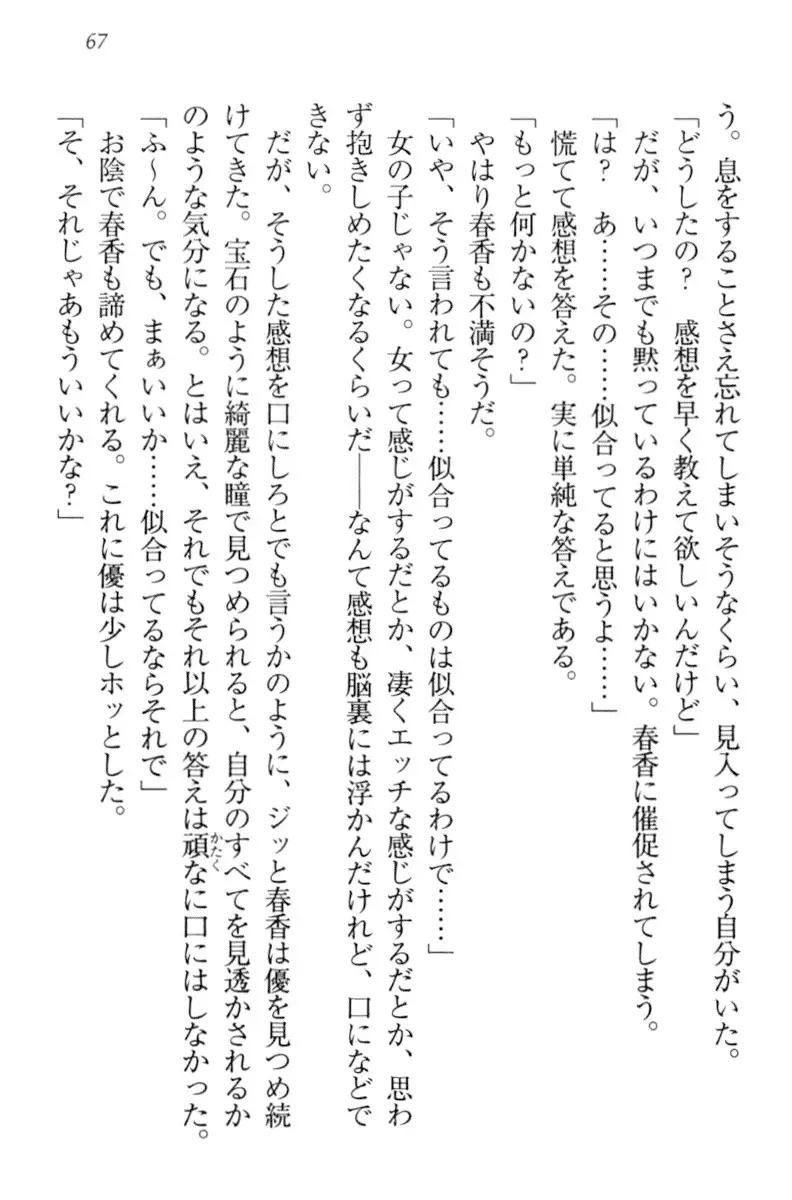 67
う。息をすることさえ忘れてしまいそうなくらい、見入ってしまう自分がいた。
「どうしたの？　感想を早く教えて欲しいんだけど」
だが、いつまでも黙っているわけにはいかない。春香に催促されてしまう。
「は？　あ……その……似合ってると思うよ……」
慌てて感想を答えた。実に単純な答えである。
「もっと何かないの？」
やはり春香も不満そうだ。
「いや、そう言われても……似合ってるものは似合ってるわけで……」
女の子じゃない。女って感じがするだとか、凄くエッチな感じがするだとか、思わ
ず抱きしめたくなるくらいだ――なんて感想も脳裏には浮かんだけれど、口になどで
きない。
だが、そうした感想を口にしろとでも言うかのように、ジッと春香は優を見つめ続
けてきた。宝石のように綺麗な瞳で見つめられると、自分のすべてを見透かされるか
のような気分になる。とはいえ、それでもそれ以上の答えは頑なに口にはしなかった。
かたく
「ふ～ん。でも、まぁいいか……似合ってるならそれで」
お陰で春香も諦めてくれる。これに優は少しホッとした。
「そ、それじゃあもういいかな？」